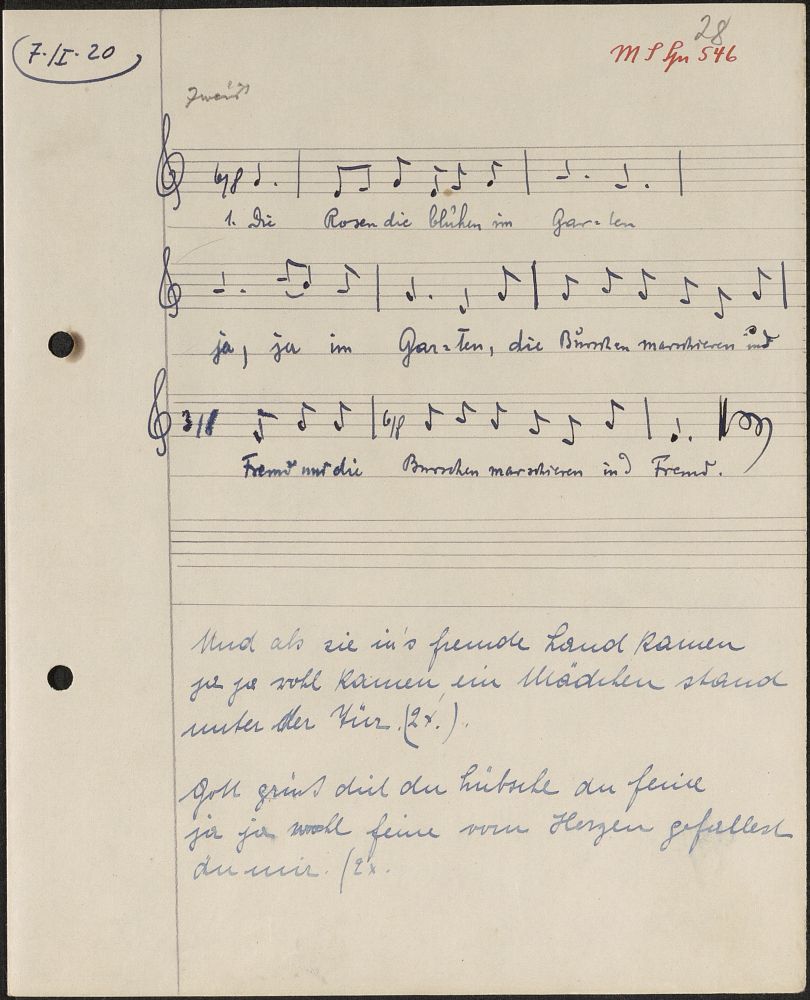 28
7./I. 20
MS Gn 546
6/8
1. Die Rosen die blühen im Gar=ten
ja, ja im Gar=ten, die Burschen marschieren ind
3/8 6/8
Fremd und die Burschen marschieren ind Fremd.
Und als sie in's fremde Land kamen
ja ja wohl kamen ein Mädchen stand
unter der Tür. (2x.).
Gott grüsst dich du hübsche du feine
ja ja wohl feine vom Herzen gefallest
du mir. (2x.